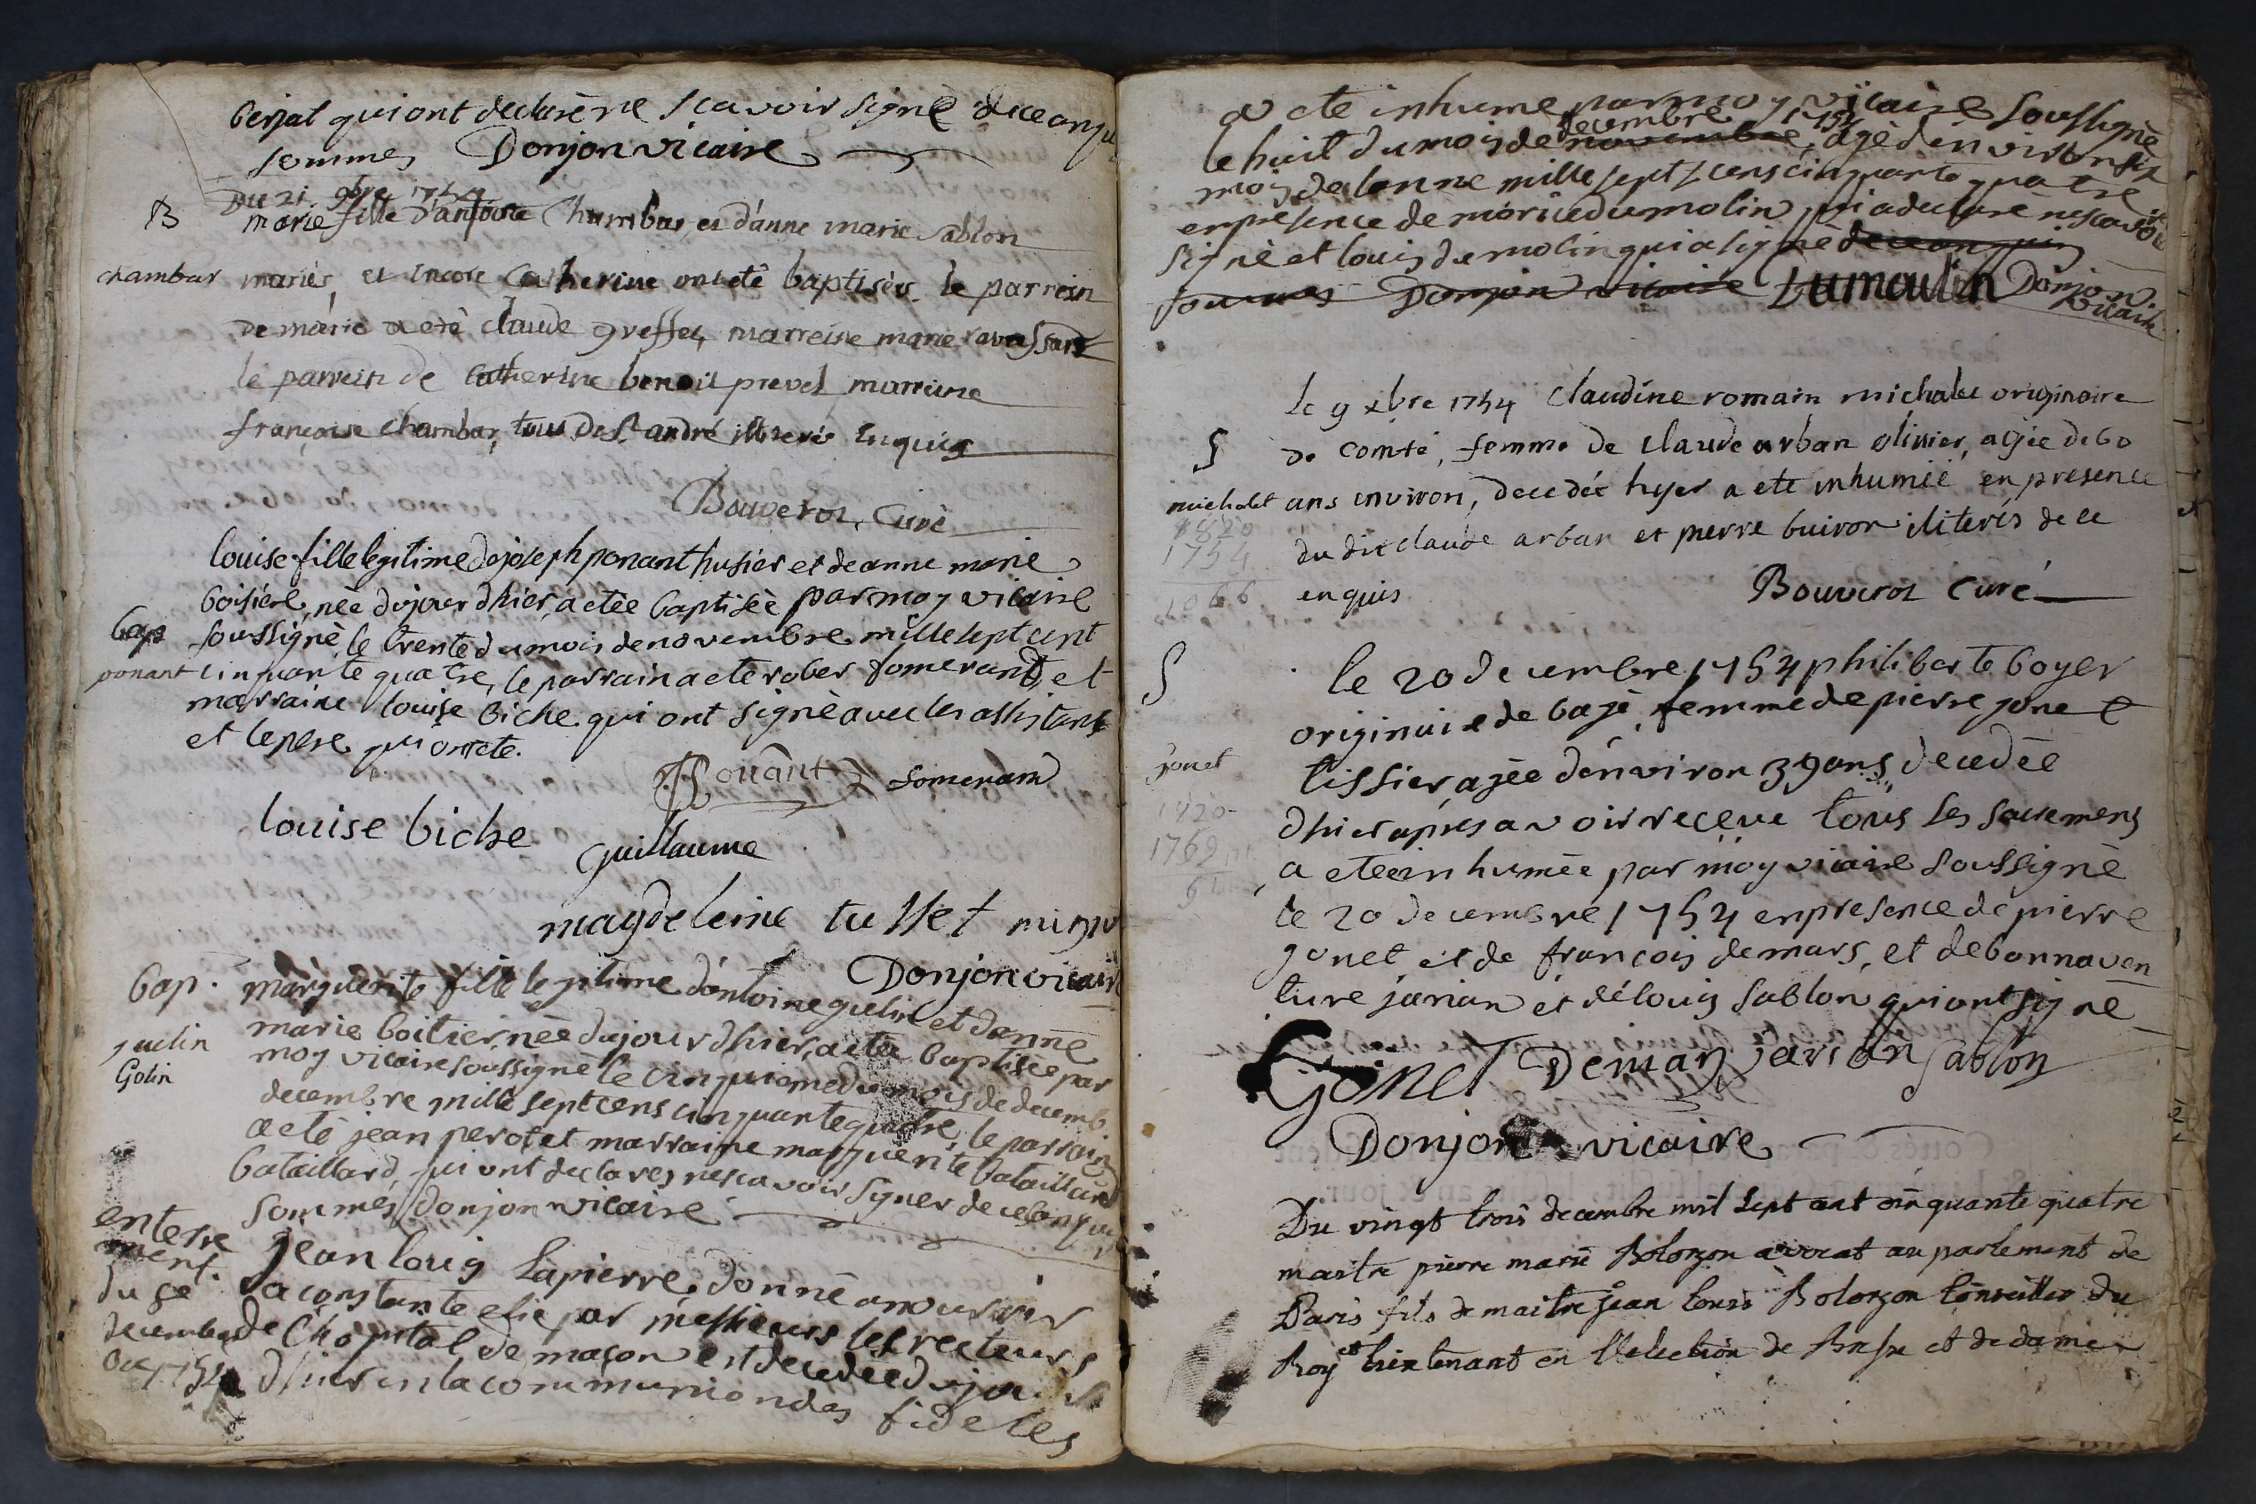 berjat qui ont declarè ne scavoir signè de ce enqu
sommes Donjon vicaire
B
Du 21 9bre 1754
marie fille d'antoine Chambar et d'anne marie sablon
chambar
mariés, et encore Catherine ont eté baptisées. le parrein
de marie a eté claude greffet, marreine marie
le parrein de Catherine benoit prevel marreine
françoise chambar, tous de St. andré illiterés enquis
Bouverot, Curé
louise fille legitime de joseph ponant husier et de anne marie
boisiere, née du jour dhier, a etée baptiséè par moy vicaire
bap
soussignè, le trente du mois de novembre mille sept cent
ponant
cinquante quatre, le parrain a etè rober fomerand, et
marraine louise biche qui ont signè avec les assistants
et le pere qui ont ete.
Ponant fomerand
louise biche
guillaume
magdeleine tusset
Donjon vicaire
bap.
marguerite fille legitime d'antoine gulin et danne
marie boitier, née du jour dhier, a eté baptiséè par
gulin
Golin
moy vicaire soussignè le cinquieme du mois de decemb
decembre mille sept cens cinquante quatre, le parrain
a etè jean perotet marraine marguerite bataillard
bataillard, qui ont declarès ne scavoir signer de ce enquis
sommes, donjon vicaire
enterre
ment.
du 8e
decembre
1754
jean louis lapierre, donnè a nourrir
a constante elie par messieurs les recteurs
de l'hopital de maçon est decedèe du jour
dhier en la communion des fideles
a ete inhume par moy vicaire soussignè
le huit du mois de novembre decembre 1754, agè d'environ six
mois de lanne mille sept cens cinquante quatre
en presence de morice dumolin qui a declarè ne scavoir
signè et louis dumolin qui a signè de ce enquis
sommes Donjon vicaire Dumoulin Donjon
vicaire
le 9 xbre 1754 Claudine romain michalet originaire
S
de comté, femme de claude arban olivier, agée de 60
michalet
ans environ, decedée hyer a eté inhumée en presence
1820
1754
1066
du dit claude arban et pierre buiron iliterés de ce
enquis
Bouverot Curé
S
le 20 decembre 1754 philiberte boyer
originaire de bagé, femme de pierre jonet
jonet
tissier, agée d'environ 39 ans, decedée
1720
1769
dhier aprés avoir reçeue tous les sacremens
a eteè inhumèe par moy vicaire soussignè
le 20 decembre 1754 en presence de pierre
gonet, et de francois demars, et de bonnaven
ture jarian et de louis sablon qui ont signè
Gonet Demars jarian sablon
Donjon vicaire
Du vingt trois decembre mil sept cent cinquante quatre
maitre pierre marie Bolozon avocat au parlement de
Paris fils de maitre jean louis Bolozon Conseiller du
Roy et lieutenant en l'election de Bresse et de dame